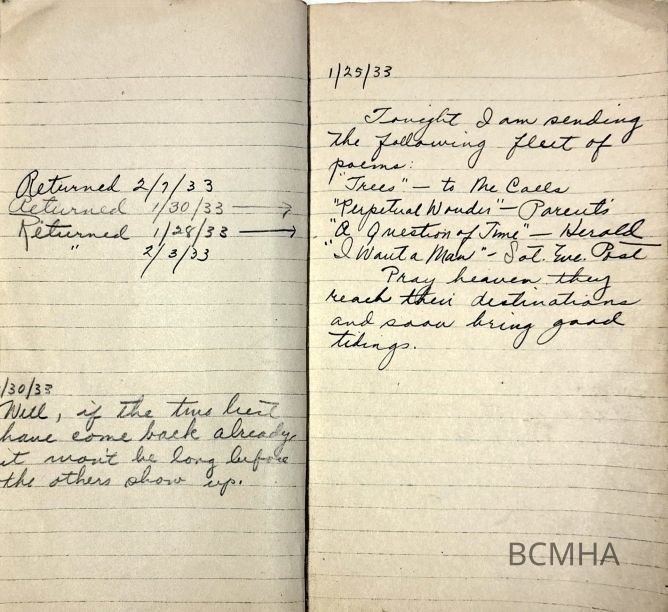 Returned 2/7/33
Returned 1/30/33
Returned 1/28/33
" 2/3/33
1/30/33
Well, if the two best
have come back already,
it won't be long before
the others show up.
1/25/33
Tonight I am sending
the following fleet of
poems:
"Trees" — to Mc Calls
"Perpetual Wonder" — Parent's
"A Question of Time" — Herald
"I Want a Man" - Sat. Eve. Post
Pray heaven they
reach their destinations
and soon bring good
tidings.
BCMHA